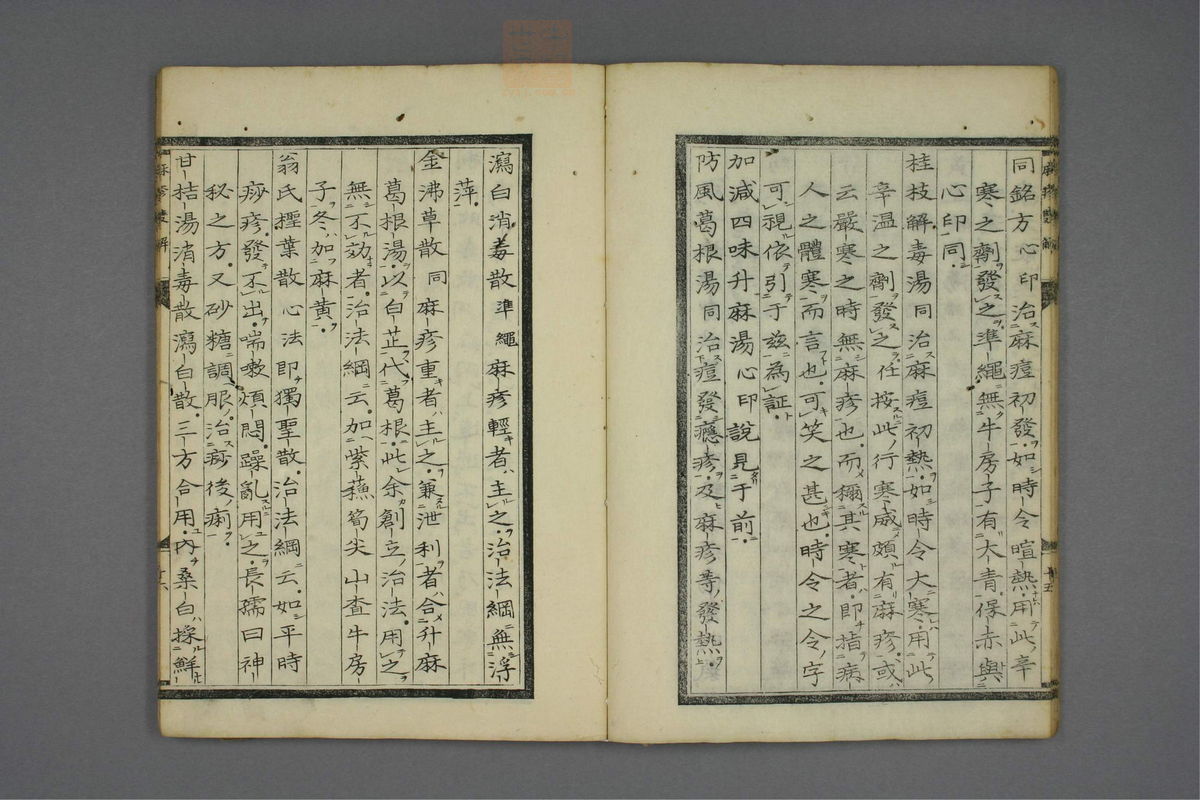 同銘方心印治麻痘初發如時令暄熱用此辛
寒之劑發之準繩無牛房子有大青倮赤與
心印同
桂枝解毒湯同治麻痘初熱如時令大寒用此
辛温之劑發之任按此行寒威頗有麻疹或
云嚴寒之時無麻疹也而稱其寒者即指病
人之體寒而言也可笑之甚也時令之令字
可視依引于玆為証
加減四味升麻湯心印說見于前
防風葛根湯同治痘發癮疹及麻疹等發熱
瀉白消毒散準繩麻疹輕者主之治法綱無浮
萍
金沸草散同麻疹重者主之兼泄利者合升麻
葛根湯以白芷代葛根此余創立治法用之
無不効者治法綱云加紫蘓筍尖山査牛房
子冬加麻黄
翁氏檉葉散心法即獨聖散治法綱云如平時
痧疹發不出喘嗽煩悶躁亂用之長孺曰神
秘之方又砂糖調服治痧後痢
甘桔湯消毒散瀉白散三方合用內桑白採鮮